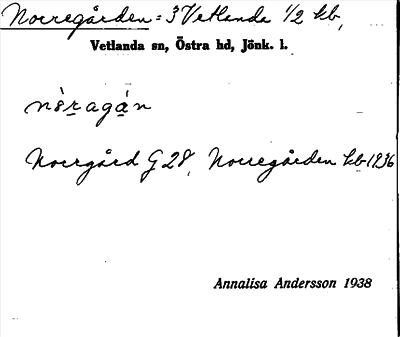 Norregården = 3 Vetlanda 1/2 kb,
Vetlanda sn, Östra hd, Jönk. l.
nòragá̱n
Norrgård G 28, Norregården kb 1236
Annalisa Andersson 1938